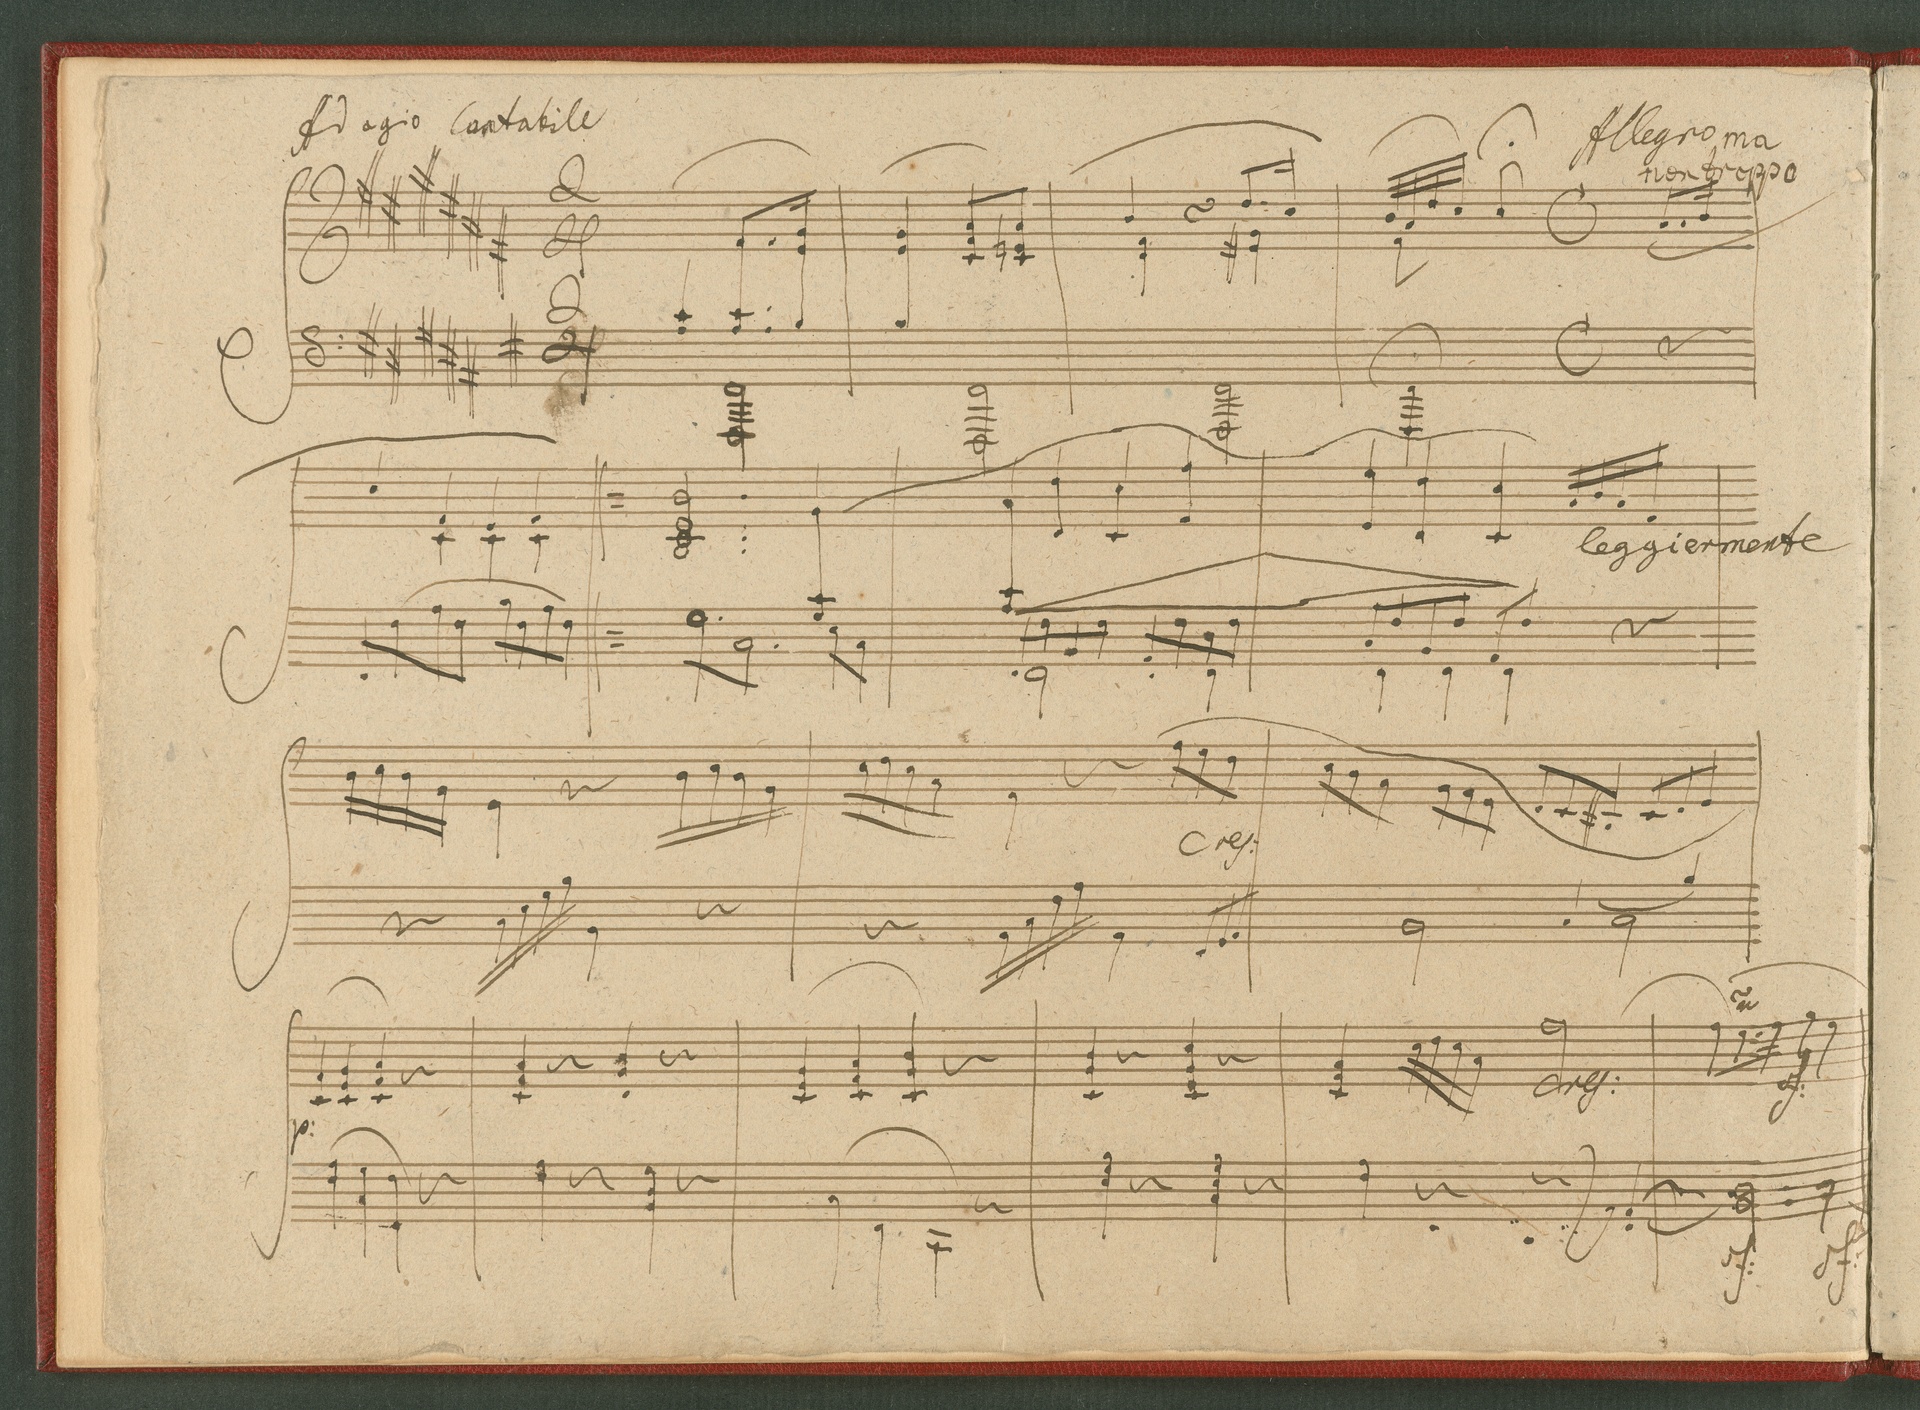 Adagio Cantabile
Allegro, ma
non troppo
leggiermente
Cresc:
p:
cresc:
sf:
sf: sf: